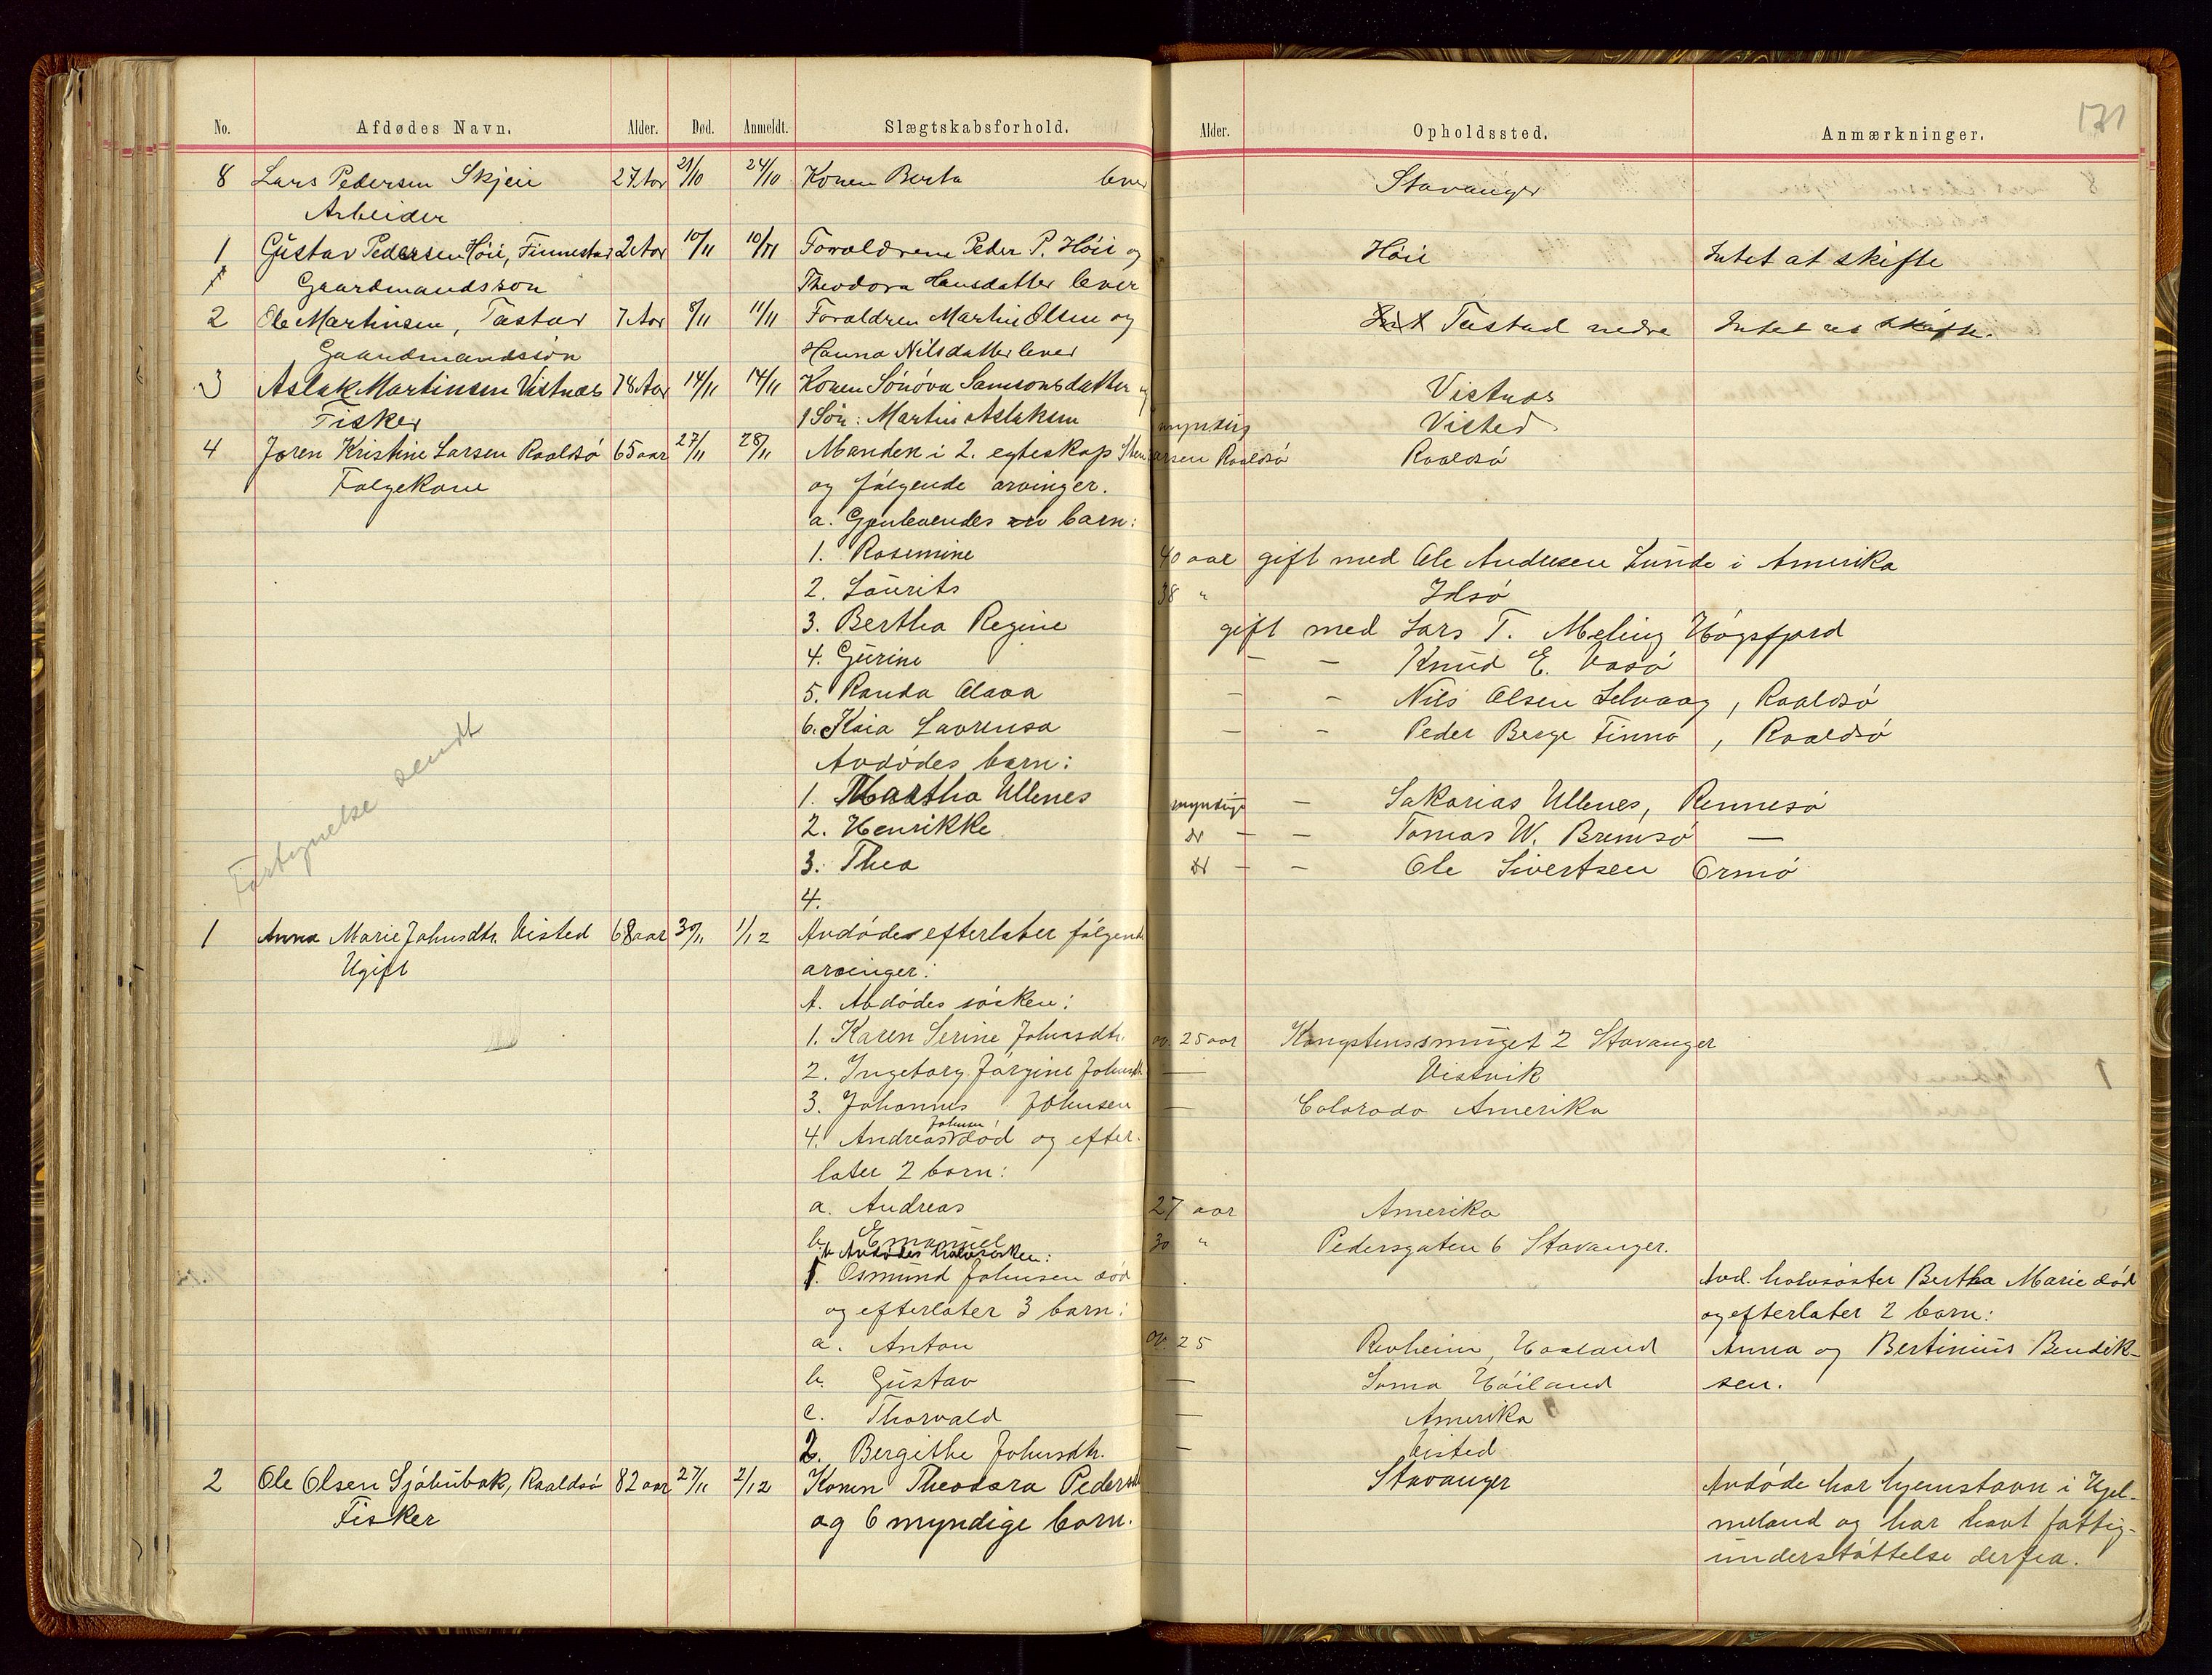 171
No. Afdødes Navn. Alder. Død. Anmeldt. Slægtskabsforhold. Alder. Opholdssted. Anmærkninger.
8 Lars Pedersen Skjeie 27 Aar 21/10 24/10 Konen Berta lever Stavanger
Arbeider
1 Gustav Pedersen Höie, Finnestad 2 Aar 10/11 10/11 Forældrene Peder P. Höie og Höie Intet at skifte
Gaardmandssön Theodora Hansdatter lever
2 Ole Martinsen, Tastad 7 Aar 8/11 11/11 Forældren Martin Olsen og Tastad nedre Intet at skifte.
Gaardmandssön Hanna Nilsdatter lever
3 Aslak Martinsen Vistnæs 78 Aar 14/11 14/11 Konen Sönöva Samsonsdatter og Vistnæs
Fisker 1 Sön: Martin Aslaksen myndig Visted
4 Joren Kristine Larsen Raaldsö 65 aar 27/11 28/11 Manden i 2. egteskap Larsen Raaldsö Raaldsö
Folgekone og fölgende arvinger.
a. Gjenlevendes barn:
1. Rasmine 40 aar gift med Ole Andresen Lunde i Amerika
2. Laurits 38 " Idsö
3. Bertha Regine gift med Lars T. Meling Högsfjord
4. Gurine — — Knud E. Vasö
5. Randa Olava — — Nils Olsen Selvaag, Raaldsö
6. Kaia Lavrensa — — Peder Berge Finnö, Raaldsö
Avdödes barn:
1. Martha Ullenes myndige — Sakarias Ullenes, Rennesö
2. Henrikke do — — Tomas W. Bremsö —
3. Thea do — — Ole Sivertsen Ormö
4.
Fortegnelse sendt
1 Anna Marie Johnsdtr. Visted 68 aar 30/11 1/12 Avdöde efterlater fölgende
Ugift arvinger:
A. Avdödes sösken:
1. Karen Serine Johnsdtr. ov. 25 aar Kongstenssmuget 2 Stavanger
2. Ingeborg Jörgine Johnsdtr. — Vistvik
3. Johannes Johnsen — Colorado Amerika
Johnsen
4. Andreas död og efter-
later 2 barn:
a. Andreas 27 aar Amerika
b. Emanuel 30 " Pedersgaten 6 Stavanger.
b Avdödes halvsösken:
1. Osmund Johnsen död Avd. halvsöster Bertha Marie död
og efterlater 3 barn: og efterlater 2 barn:
a. Anton ov. 25 Revheim, Haaland Anna og Bertinius Bendik-
b. Gustav — Soma Höiland sen.
c. Thorvald — Amerika
2. Bergithe Johnsdtr. — Visted
2 Ole Olsen Sjöhubak, Raaldsö 82 aar 27/11 2/12 Konen Theodora Pedersdtr Stavanger Avdöde har hjemstavn i Hjel-
Fisker og 6 myndige barn. meland og har havt fattig-
understöttelse derfra.